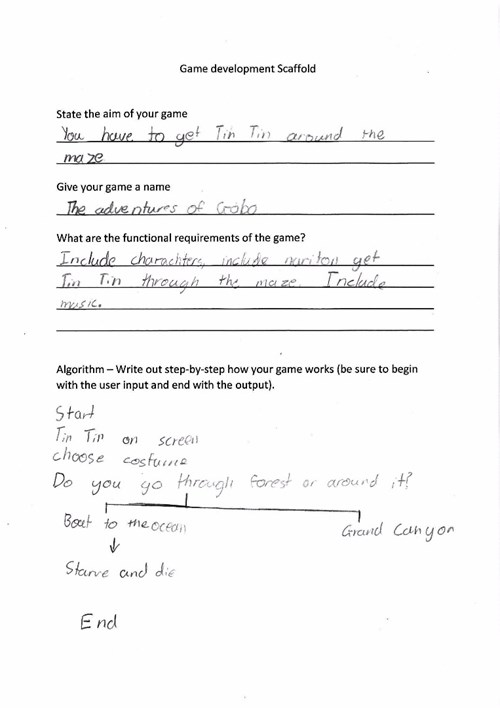 Game development Scaffold
State the aim of your game
You have to get Tin Tin around the
maze
Give your game a name
The adventures of Gobo
What are the functional requirements of the game?
Include charachters, include nariton get
Tin Tin through the maze. Include
music.
Algorithm – Write out step-by-step how your game works (be sure to begin
with the user input and end with the output).
Start
Tin Tin on screen
choose costume
Do you go through forest or around it?
Boat to the ocean Grand Canyon
Starve and die
End